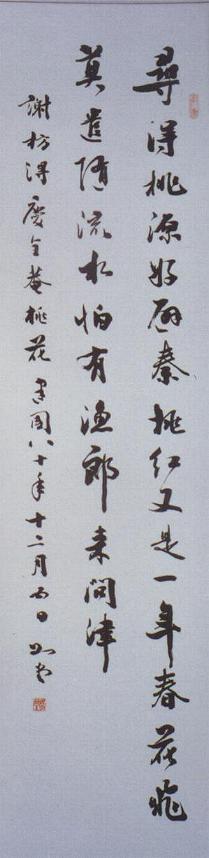 尋得桃源好避秦桃紅又是一年春花飛
莫遣隨流水怕有漁郎來問津
謝枋得慶全菴桃花 建國八十年十二月五日